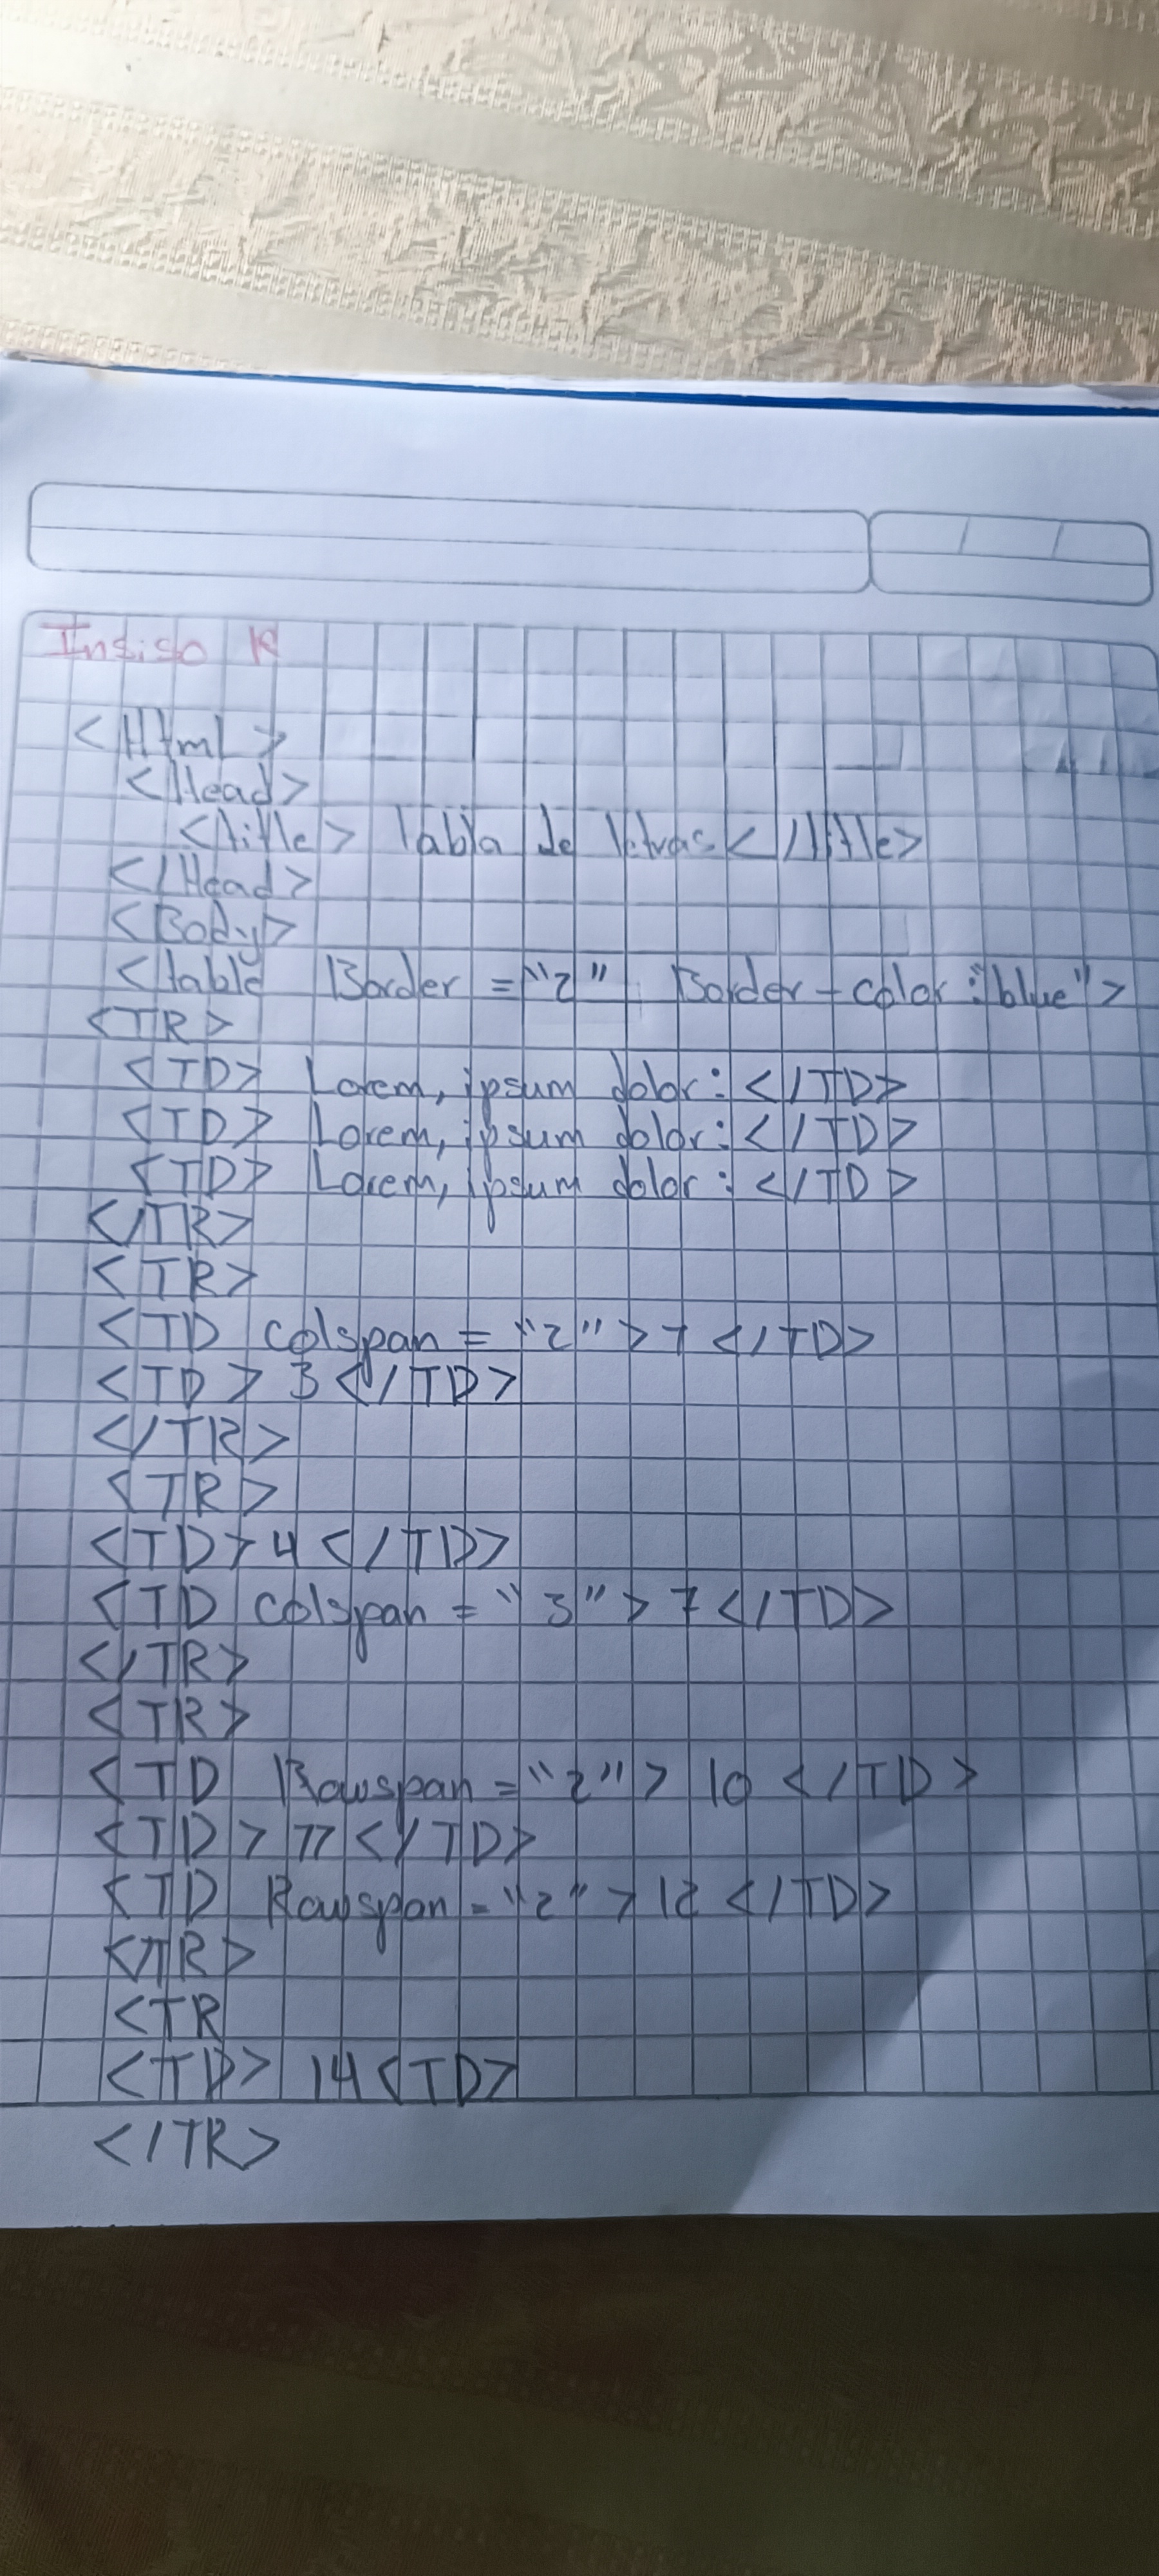 Insiso K
<Html>
<Head>
<title> Tabla de letras </title>
</Head>
<Body>
<table Border ="2" Border-color:"blue">
<TR>
<TD> Lorem, ipsum dolor: </TD>
<TD> Lorem, ipsum dolor: </TD>
<TD> Lorem, ipsum dolor: </TD>
</TR>
<TR>
<TD colspan = "2" > 1 </TD>
<TD > 3 </TD>
</TR>
<TR>
<TD> 4 </TD>
<TD colspan = "3" > 7 </TD>
</TR>
<TR>
<TD Rowspan = "2" > 10 </TD>
<TD > 11 </TD>
<TD Rowspan = "2" > 12 </TD>
</TR>
<TR
<TD> 14 <TD>
</TR>